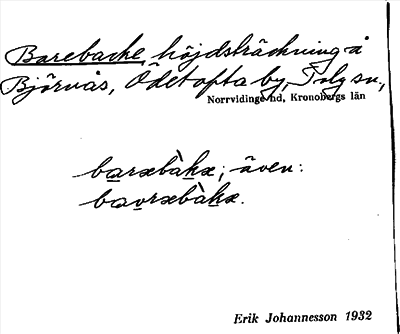 Barebacke, höjdsträckning å
Björnås, Ödetofta by, Tolg sn,
Norrvidinge hd, Kronobergs län
barəbàkə; även:
bavrəbàkə.
Erik Johannesson 1932